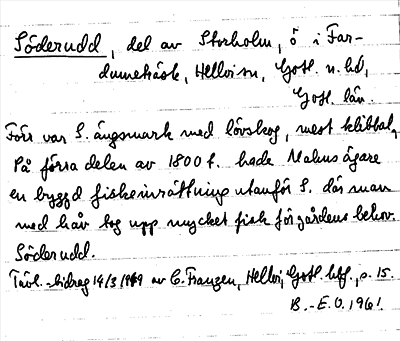 Söderudd, del av Storholm, ö i Far-
dumeträsk, Hellvi sn, Gotl. n. hd,
Gotl. län.
Förr var S. ängsmark med lövskog, mest klibbal,
På förra delen av 1800 t. hade Malms ägare
en byggd fiskeinrättning utanför S. där man
med håv tog upp mycket fisk för gårdens behov.
Söderudd.
Tävl.-bidrag 14/3 1949 av C. Franzén, Hellvi, Gotl. hfl, s. 15.
B.-E. O. 1961.